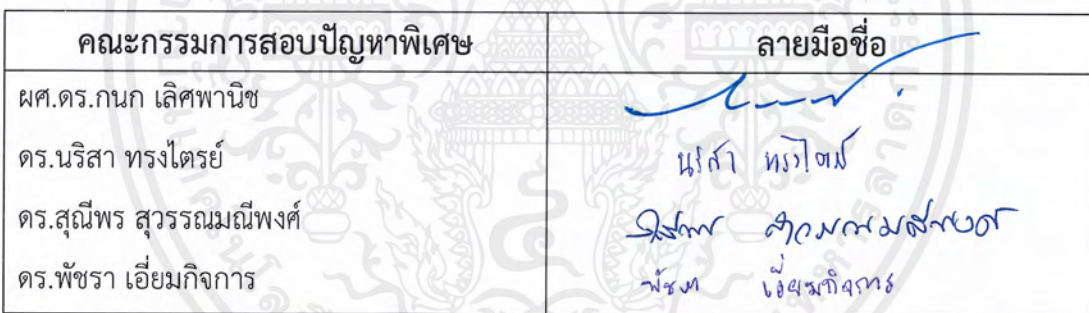 คณะกรรมการสอบปัญหาพิเศษ ลายมือชื่อ
ผศ.ดร.กนก เลิศพานิช
ดร.นริสา ทรงไตรย์ นริสา ทรงไตรย์
ดร.สุณีพร สุวรรณมณีพงศ์ สุณีพร สุวรรณมณีพงศ์
ดร.พัชรา เอี่ยมกิจการ พัชรา เอี่ยมกิจการ